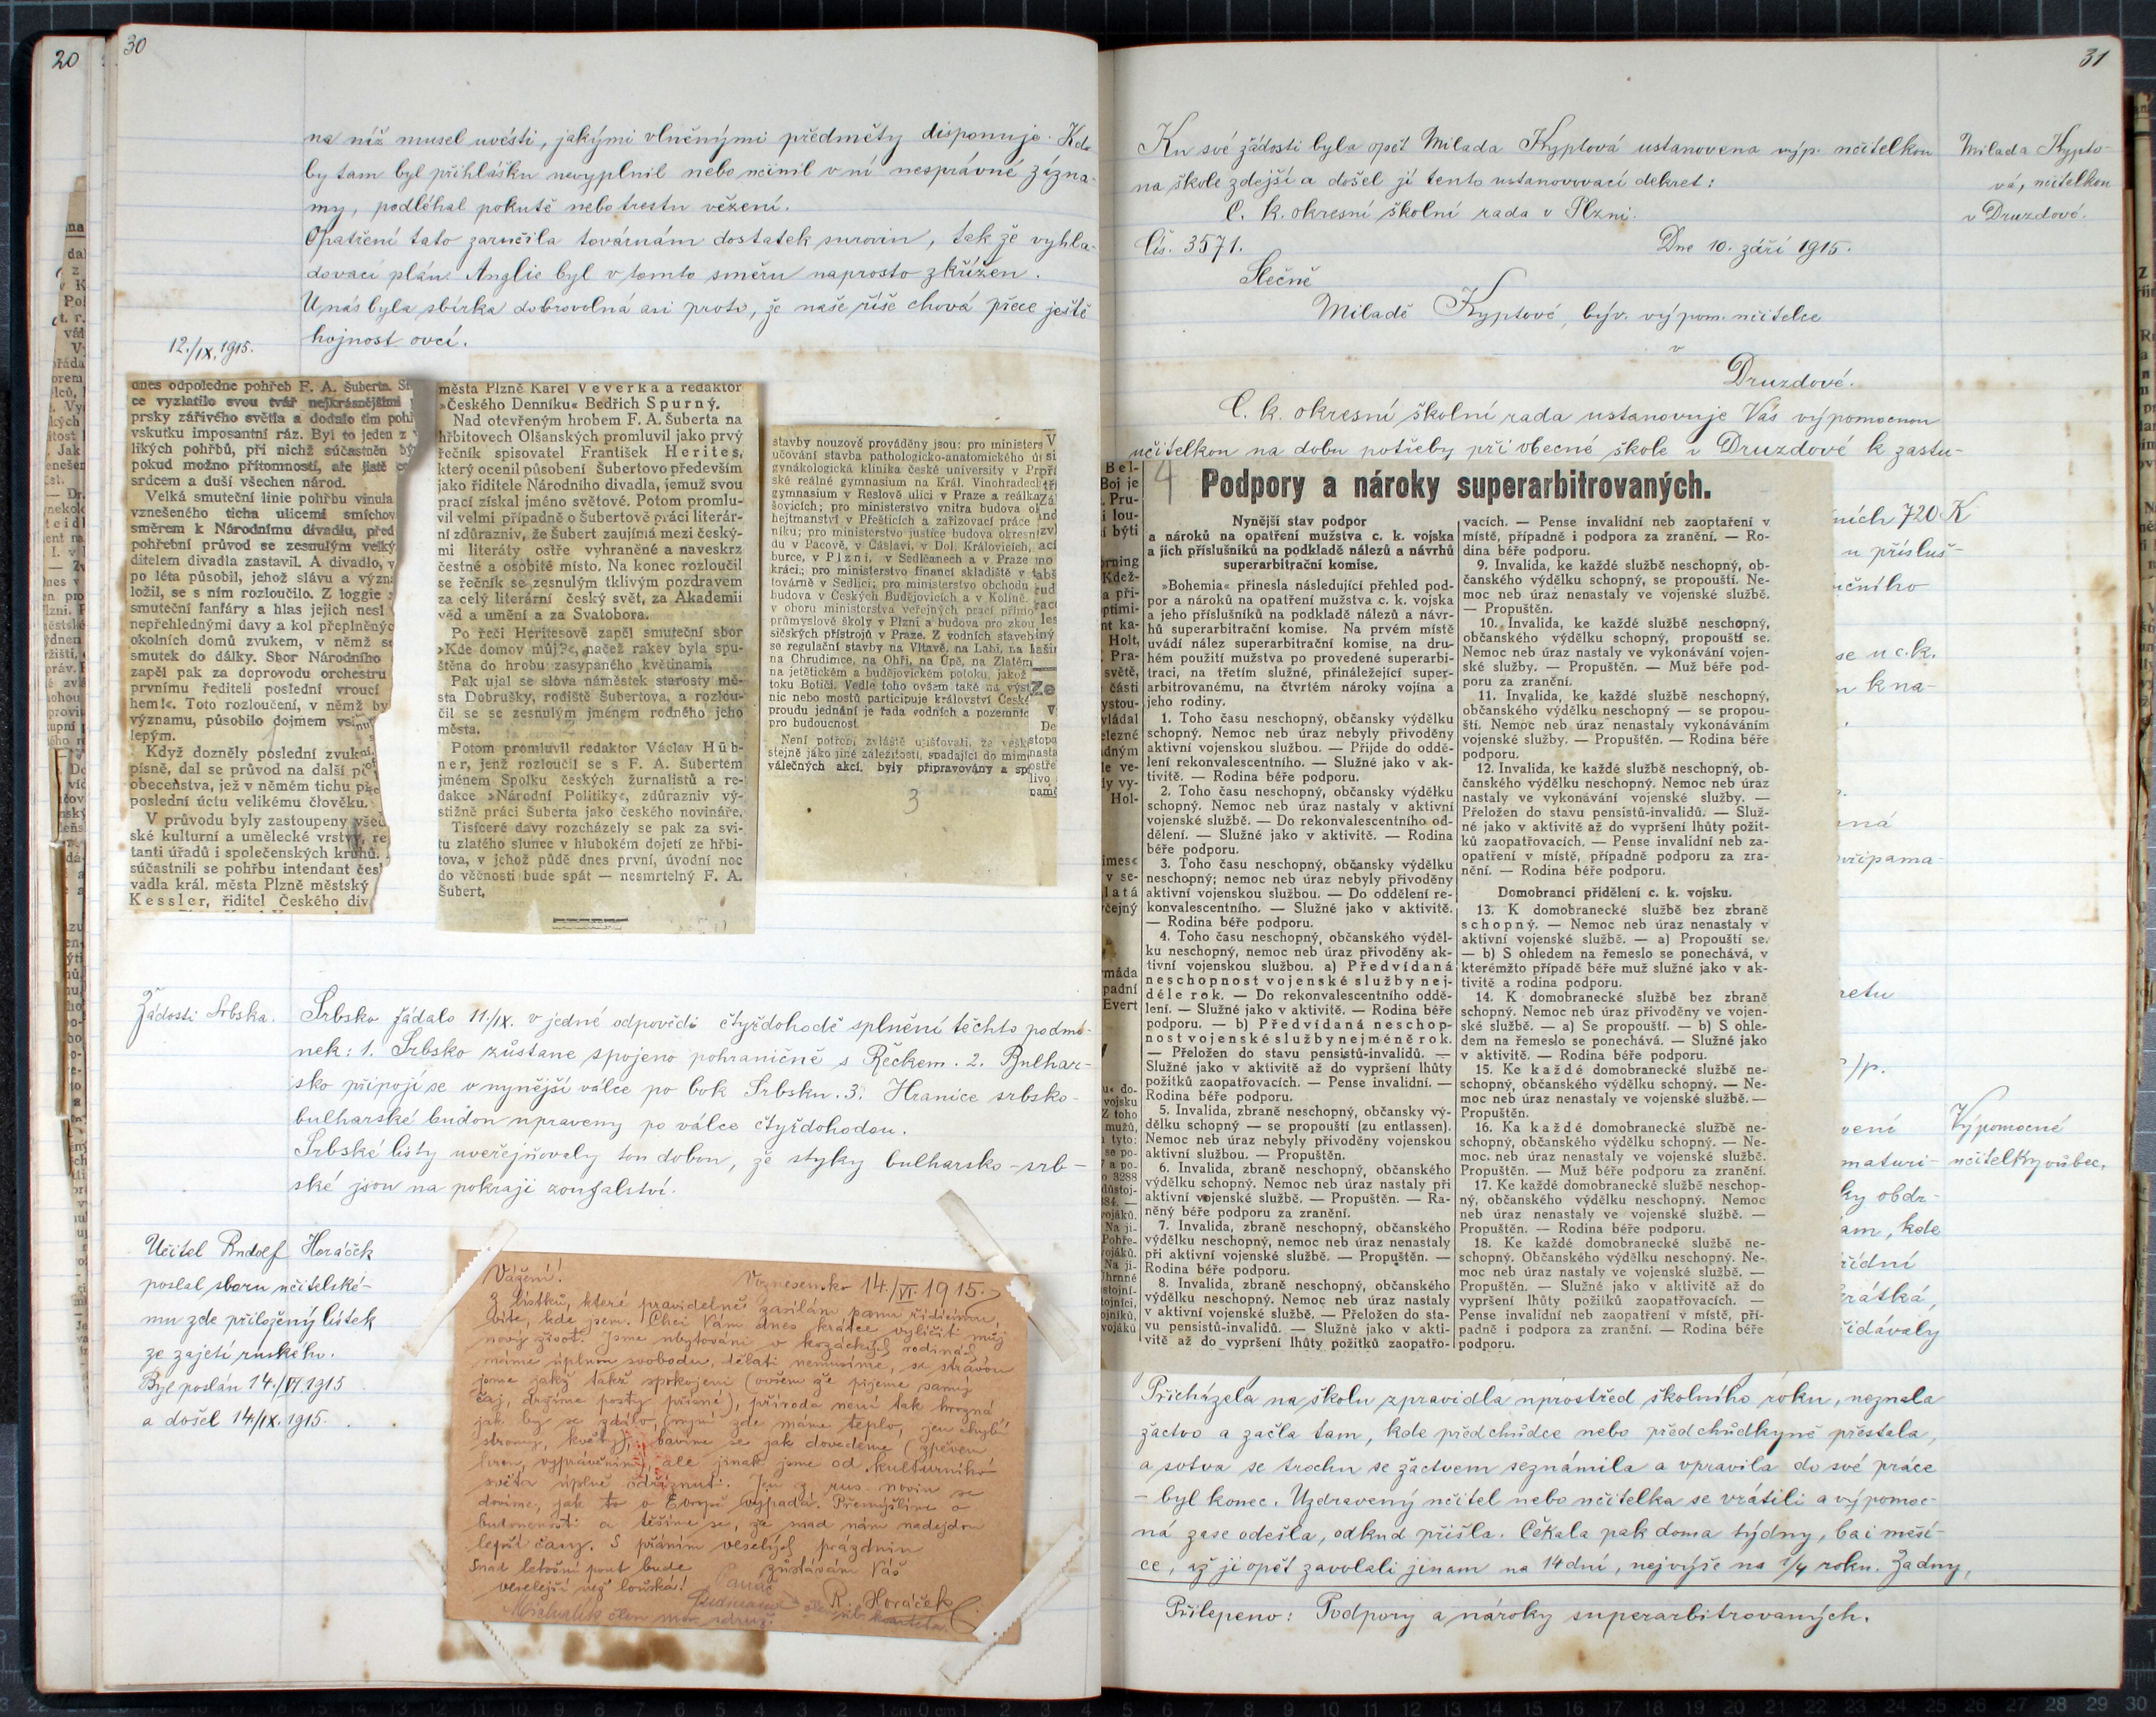 20
30
na níž musel uvésti, jakými vlněnými předměty disponuje. Kdo
by tam byl přihlášku nevyplnil nebo učinil v ní nesprávné zázna-
my, podléhal pokutě nebo trestu vězení.
Opatření tato zaručila továrnám dostatek surovin, tak že vyhla-
dovací plán Anglie byl v tomto směru naprosto zkřížen.
U nás byla sbírka dobrovolná asi proto, že naše říše chová přece ještě
hojnost ovcí.
12./IX. 1915.
dnes odpoledne pohřeb F. A. Šuberta.
ce vyzlatilo svou tvář nejkrásnějšími
prsky zářivého světla a dodalo tím
vskutku imposantní ráz. Byl to jeden z
likých pohřbů, při nichž súčastněn
pokud možno přítomností, ale jistě
srdcem a duší všechen národ.
Velká smuteční linie pohřbu vinula
vznešeného ticha ulicemi
směrem k Národnímu divadlu, před
pohřební průvod se zesnulým
ditelem divadla zastavil. A divadlo, v
po léta působil, jehož slávu a
ložil, se s ním rozloučilo. Z loggie
smuteční fanfáry a hlas jejich nesl
nepřehlednými davy a kol
okolních domů zvukem, v němž
smutek do dálky. Sbor Národního
zapěl pak za doprovodu orchestru
prvnímu řediteli poslední vroucí
hem!«. Toto rozloučení, v němž
významu, působilo dojmem
lepým.
Když dozněly poslední
písně, dal se průvod na další
obecenstva, jež v němém tichu
poslední úctu velikému člověku.
V průvodu byly zastoupeny
ské kulturní a umělecké vrstvy,
tanti úřadů i společenských kruhů.
súčastnili se pohřbu intendant
vadla král. města Plzně městský
Kessler, řiditel Českého
města Plzně Karel Veverka a redaktor
»Českého Denníku« Bedřich Spurný.
Nad otevřeným hrobem F. A. Šuberta na
hřbitovech Olšanských promluvil jako prvý
řečník spisovatel František Herites,
který ocenil působení Šubertovo především
jako řiditele Národního divadla, jemuž svou
prací získal jméno světové. Potom promlu-
vil velmi případně o Šubertově práci literár-
ní zdůrazniv, že Šubert zaujímá mezi český-
mi literáty ostře vyhraněné a naveskrz
čestné a osobité místo. Na konec rozloučil
se řečník se zesnulým tklivým pozdravem
za celý literární český svět, za Akademii
věd a umění a za Svatobora.
Po řeči Heritesově zapěl smuteční sbor
»Kde domov můj?«, načež rakev byla spu-
štěna do hrobu zasypaného květinami.
Pak ujal se slova náměstek starosty mě-
sta Dobrušky, rodiště Šubertova, a rozlou-
čil se se zesnulým jménem rodného jeho
města.
Potom promluvil redaktor Václav Hüb-
ner, jenž rozloučil se s F. A. Šubertem
jménem Spolku českých žurnalistů a re-
dakce »Národní Politiky«, zdůrazniv vý-
stižně práci Šuberta jako českého novináře.
Tisíceré davy rozcházely se pak za svi-
tu zlatého slunce v hlubokém dojetí ze hřbi-
tova, v jehož půdě dnes první, úvodní noc
do věčnosti bude spát — nesmrtelný F. A.
Šubert.
stavby nouzově prováděny jsou: pro ministers
učování stavba pathologicko-anatomického
gynákologická klinika české university v
ské reálné gymnasium na Král. Vinohradech
gymnasium v Reslově ulici v Praze a reálka
šovicích; pro ministerstvo vnitra budova
hejtmanství v Přešticích a zařizovací práce
níku; pro ministerstvo justice budova
du v Pacově, v Čáslavi, v Dol. Královicích,
burce, v Plzni, v Sedlčanech a v Praze
kráci; pro ministerstvo financí skladiště v
továrně v Sedlci; pro ministerstvo obchodu
budova v Českých Budějovicích a v Kolíně.
v oboru ministerstva veřejných prací přímo
průmyslové školy v Plzni a budova pro zkou
sičských přístrojů v Praze. Z vodních staveb
se regulační stavby na Vltavě, na Labi, na
na Chrudimce, na Ohři, na Úpě, na Zlatém
na jetětickém a budějovickém potoku, jakož
toku Botiči. Vedle toho ovšem také na
nic nebo mostů participuje království České
proudu jednání je řada vodních a pozemních
pro budoucnost.
Není potřebí, zvláště ujišťovati, že
stejně jako jiné záležitosti, spadající do
válečných akcí, byly připravovány a
3
Žádosti Srbska.
Srbsko žádalo 11./IX. v jedné odpovědi čtyřdohodě splnění těchto podmí-
nek: 1. Srbsko zůstane spojeno pohraničně s Řeckem. 2. Bulhar-
sko připojí se v nynější válce po bok Srbsku. 3. Hranice srbsko-
bulharské budou upraveny po válce čtyřdohodou.
Srbské listy uveřejňovaly tou dobou, že styky bulharsko-srb-
ské jsou na pokraji zoufalství.
Učitel Rudolf Horáček
poslal sboru učitelské-
mu zde přiložený lístek
ze zajetí ruského.
Byl poslán 14./VI. 1915
a došel 14./IX. 1915.
Vážení!
Voznesensko 14./VI 1915.
Z lístků, které pravidelně zasílám panu řídícímu,
víte, kde jsem. Chci Vám dnes krátce vylíčiti můj
nový život. Jsme ubytováni v kozáckých rodinách
máme úplnou svobodu, dělati nemusíme, se stravou
jsme jakž takž spokojeni (ovšem že pijeme samý
čaj, držíme posty přísné), příroda není tak hrozná
jak by se zdálo, (nyní zde máme teplo, jen chybí
stromy, květy), bavíme se jak dovedeme (zpěvem
hrou, vypravěním), ale jinak jsme od kulturního
světa úplně odříznuti. Jen z rus. novin se
dovíme, jak to v Evropě vypadá. Přemýšlíme o
budoucnosti a těšíme se, že snad nám nadejdou
lepší časy. S přáním veselých prázdnin
Snad letošní pout bude zůstávám Váš
veselejší než loňská!
R. Horáček
31
Ku své žádosti byla opět Milada Kyptová ustanovena výp. učitelkou
na škole zdejší a došel jí tento ustanovovací dekret:
C. k. okresní školní rada v Plzni.
Čís. 3571.
Dne 10. září 1915.
Slečně
Miladě Kyptové, býv. výpom. učitelce
v
Druzdové.
C. k. okresní školní rada ustanovuje Vás výpomocnou
učitelkou na dobu potřeby při obecné škole v Druzdové k zastu-
Milada Kypto-
vá, učitelkou
v Druzdové.
4
Podpory a nároky superarbitrovaných.
Nynější stav podpor
a nároků na opatření mužstva c. k. vojska
a jich příslušníků na podkladě nálezů a návrhů
superarbitrační komise.
»Bohemia« přinesla následující přehled pod-
por a nároků na opatření mužstva c. k. vojska
a jeho příslušníků na podkladě nálezů a návr-
hů superarbitrační komise. Na prvém místě
uvádí nález superarbitrační komise, na dru-
hém použití mužstva po provedené superarbi-
traci, na třetím služné, přináležející super-
arbitrovanému, na čtvrtém nároky vojína a
jeho rodiny.
1. Toho času neschopný, občansky výdělku
schopný. Nemoc neb úraz nebyly přivoděny
aktivní vojenskou službou. — Přijde do oddě-
lení rekonvalescentního. — Služné jako v ak-
tivitě. — Rodina béře podporu.
2. Toho času neschopný, občansky výdělku
schopný. Nemoc neb úraz nastaly v aktivní
vojenské službě. — Do rekonvalescentního od-
dělení. — Služné jako v aktivitě. — Rodina
béře podporu.
3. Toho času neschopný, občansky výdělku
neschopný; nemoc neb úraz nebyly přivoděny
aktivní vojenskou službou. — Do oddělení re-
konvalescentního. — Služné jako v aktivitě.
— Rodina béře podporu.
4. Toho času neschopný, občanského výděl-
ku neschopný, nemoc neb úraz přivoděny ak-
tivní vojenskou službou. a) Předvídaná
neschopnost vojenské služby nej-
déle rok. — Do rekonvalescentního oddě-
lení. — Služné jako v aktivitě. — Rodina béře
podporu. — b) Předvídaná neschop-
nost vojenské služby nejméně rok.
— Přeložen do stavu pensistů-invalidů. —
Služné jako v aktivitě až do vypršení lhůty
požitků zaopatřovacích. — Pense invalidní. —
Rodina béře podporu.
5. Invalida, zbraně neschopný, občansky vý-
dělku schopný — se propouští (zu entlassen).
Nemoc neb úraz nebyly přivoděny vojenskou
aktivní službou. — Propuštěn.
6. Invalida, zbraně neschopný, občanského
výdělku schopný. Nemoc neb úraz nastaly při
aktivní vojenské službě. — Propuštěn. — Ra-
něný béře podporu za zranění.
7. Invalida, zbraně neschopný, občanského
výdělku neschopný, nemoc neb úraz nenastaly
při aktivní vojenské službě. — Propuštěn. —
Rodina béře podporu.
8. Invalida, zbraně neschopný, občanského
výdělku neschopný. Nemoc neb úraz nastaly
v aktivní vojenské službě. — Přeložen do sta-
vu pensistů-invalidů. — Služné jako v akti-
vitě až do vypršení lhůty požitků zaopatřo-
vacích. — Pense invalidní neb zaoptaření v
místě, případně i podpora za zranění. — Ro-
dina béře podporu.
9. Invalida, ke každé službě neschopný, ob-
čanského výdělku schopný, se propouští. Ne-
moc neb úraz nenastaly ve vojenské službě.
— Propuštěn.
10. Invalida, ke každé službě neschopný,
občanského výdělku schopný, propouští se.
Nemoc neb úraz nastaly ve vykonávání vojen-
ské služby. — Propuštěn. — Muž béře pod-
poru za zranění.
11. Invalida, ke každé službě neschopný,
občanského výdělku neschopný — se propou-
ští. Nemoc neb úraz nenastaly vykonáváním
vojenské služby. — Propuštěn. — Rodina béře
podporu.
12. Invalida, ke každé službě neschopný, ob-
čanského výdělku neschopný. Nemoc neb úraz
nastaly ve vykonávání vojenské služby. —
Přeložen do stavu pensistů-invalidů. — Služ-
né jako v aktivitě až do vypršení lhůty požit-
ků zaopatřovacích. — Pense invalidní neb za-
opatření v místě, případně podporu za zra-
nění. — Rodina béře podporu.
Domobranci přidělení c. k. vojsku.
13. K domobranecké službě bez zbraně
schopný. — Nemoc neb úraz nenastaly v
aktivní vojenské službě. — a) Propouští se.
— b) S ohledem na řemeslo se ponechává, v
kterémžto případě béře muž služné jako v ak-
tivitě a rodina podporu.
14. K domobranecké službě bez zbraně
schopný. Nemoc neb úraz přivoděny ve vojen-
ské službě. — a) Se propouští. — b) S ohle-
dem na řemeslo se ponechává. — Služné jako
v aktivitě. — Rodina béře podporu.
15. Ke každé domobranecké službě ne-
schopný, občanského výdělku schopný. — Ne-
moc neb úraz nenastaly ve vojenské službě. —
Propuštěn.
16. Ka každé domobranecké službě ne-
schopný, občanského výdělku schopný. — Ne-
moc. neb úraz nastaly ve vojenské službě.
Propuštěn. — Muž béře podporu za zranění.
17. Ke každé domobranecké službě neschop-
ný, občanského výdělku neschopný. Nemoc
neb úraz nenastaly ve vojenské službě. —
Propuštěn. — Rodina béře podporu.
18. Ke každé domobranecké službě ne-
schopný. Občanského výdělku neschopný. Ne-
moc neb úraz nastaly ve vojenské službě. —
Propuštěn. — Služné jako v aktivitě až do
vypršení lhůty požitků zaopatřovacích. —
Pense invalidní neb zaopatření v místě, pří-
padně i podpora za zranění. — Rodina béře
podporu.
720 K
Výpomocné
učitelky vůbec.
Přicházela na školu zpravidla uprostřed školního roku, neznala
žactvo a začla tam, kde předchůdce nebo předchůdkyně přestala,
a sotva se trochu se žactvem seznámila a vpravila do své práce
– byl konec. Uzdravený učitel nebo učitelka se vrátili a výpomoc-
ná zase odešla, odkud přišla. Čekala pak doma týdny, ba i měsí-
ce, až ji opět zavolali jinam na 14 dní, nejvýše na 1/4 roku. Žádný,
Přilepeno: Podpory a nároky superarbitrovaných.